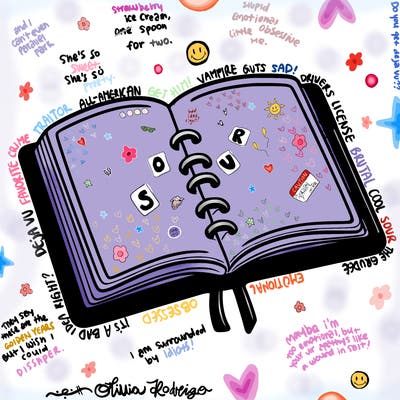 and i
can't even
parallel
park.
Strawberry
ice cream,
one spoon
for two.
Stupid
Emotional
Little Obsessive
Me.
Do you get déjà vu??
She's so
sweet.
She's so
pretty.
TRAITOR
ALL-AMERICAN
GET HIM!
VAMPIRE
GUTS
SAD!
DRIVERS LICENSE
BRUTAL
COOL
SOUR
THE GRUDGE
FAVORITE CRIME
DEJA VU
S
O
U
R
IT'S A BAD IDEA RIGHT?
OBSESSED
EMOTIONAL
They say
these are the
GOLDEN YEARS
But I wish I
could
DISSAPER.
I am surrounded
by Idiots!
Maybe i'm
too emotional, but
your apathy's like
a wound in salt!
Olivia Rodrigo